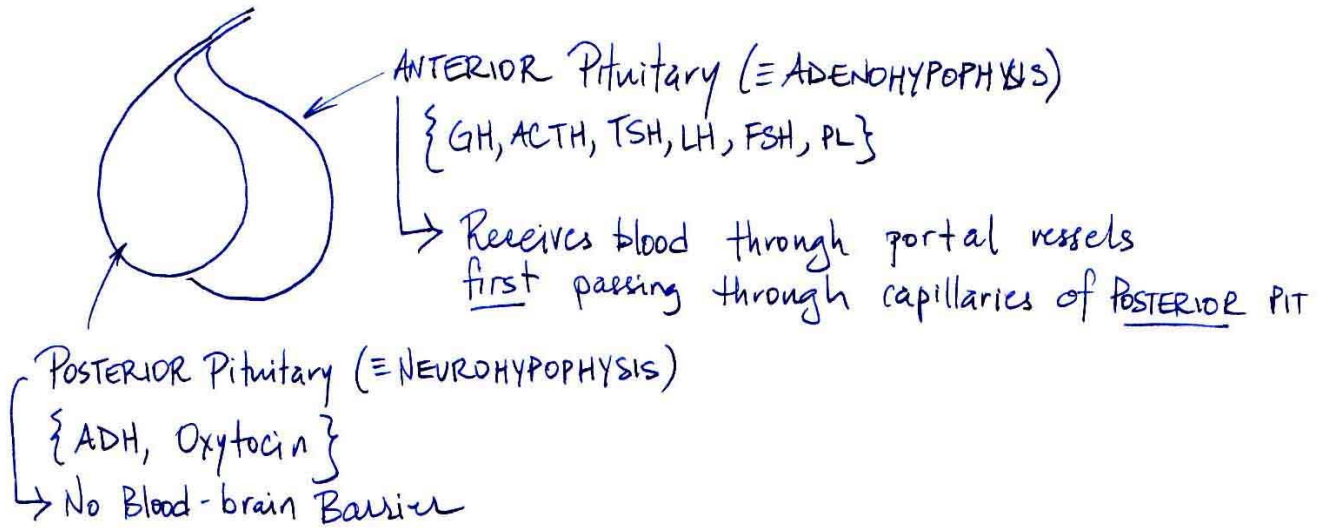 ANTERIOR Pituitary (≡ ADENOHYPOPHYSIS)
{GH, ACTH, TSH, LH, FSH, PL}
→ Receives blood through portal vessels
first passing through capillaries of POSTERIOR PIT
POSTERIOR Pituitary (≡ NEUROHYPOPHYSIS)
{ADH, Oxytocin}
→ No Blood-brain Barrier